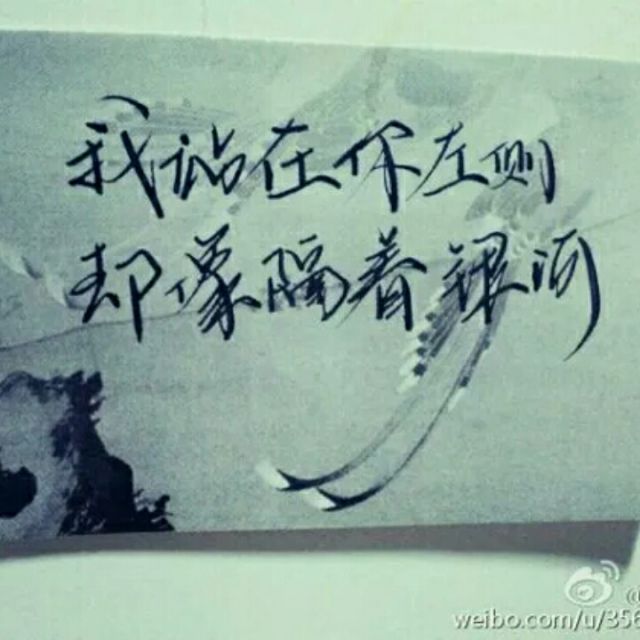 我站在你左侧
却像隔着银河
weibo.com/u/356